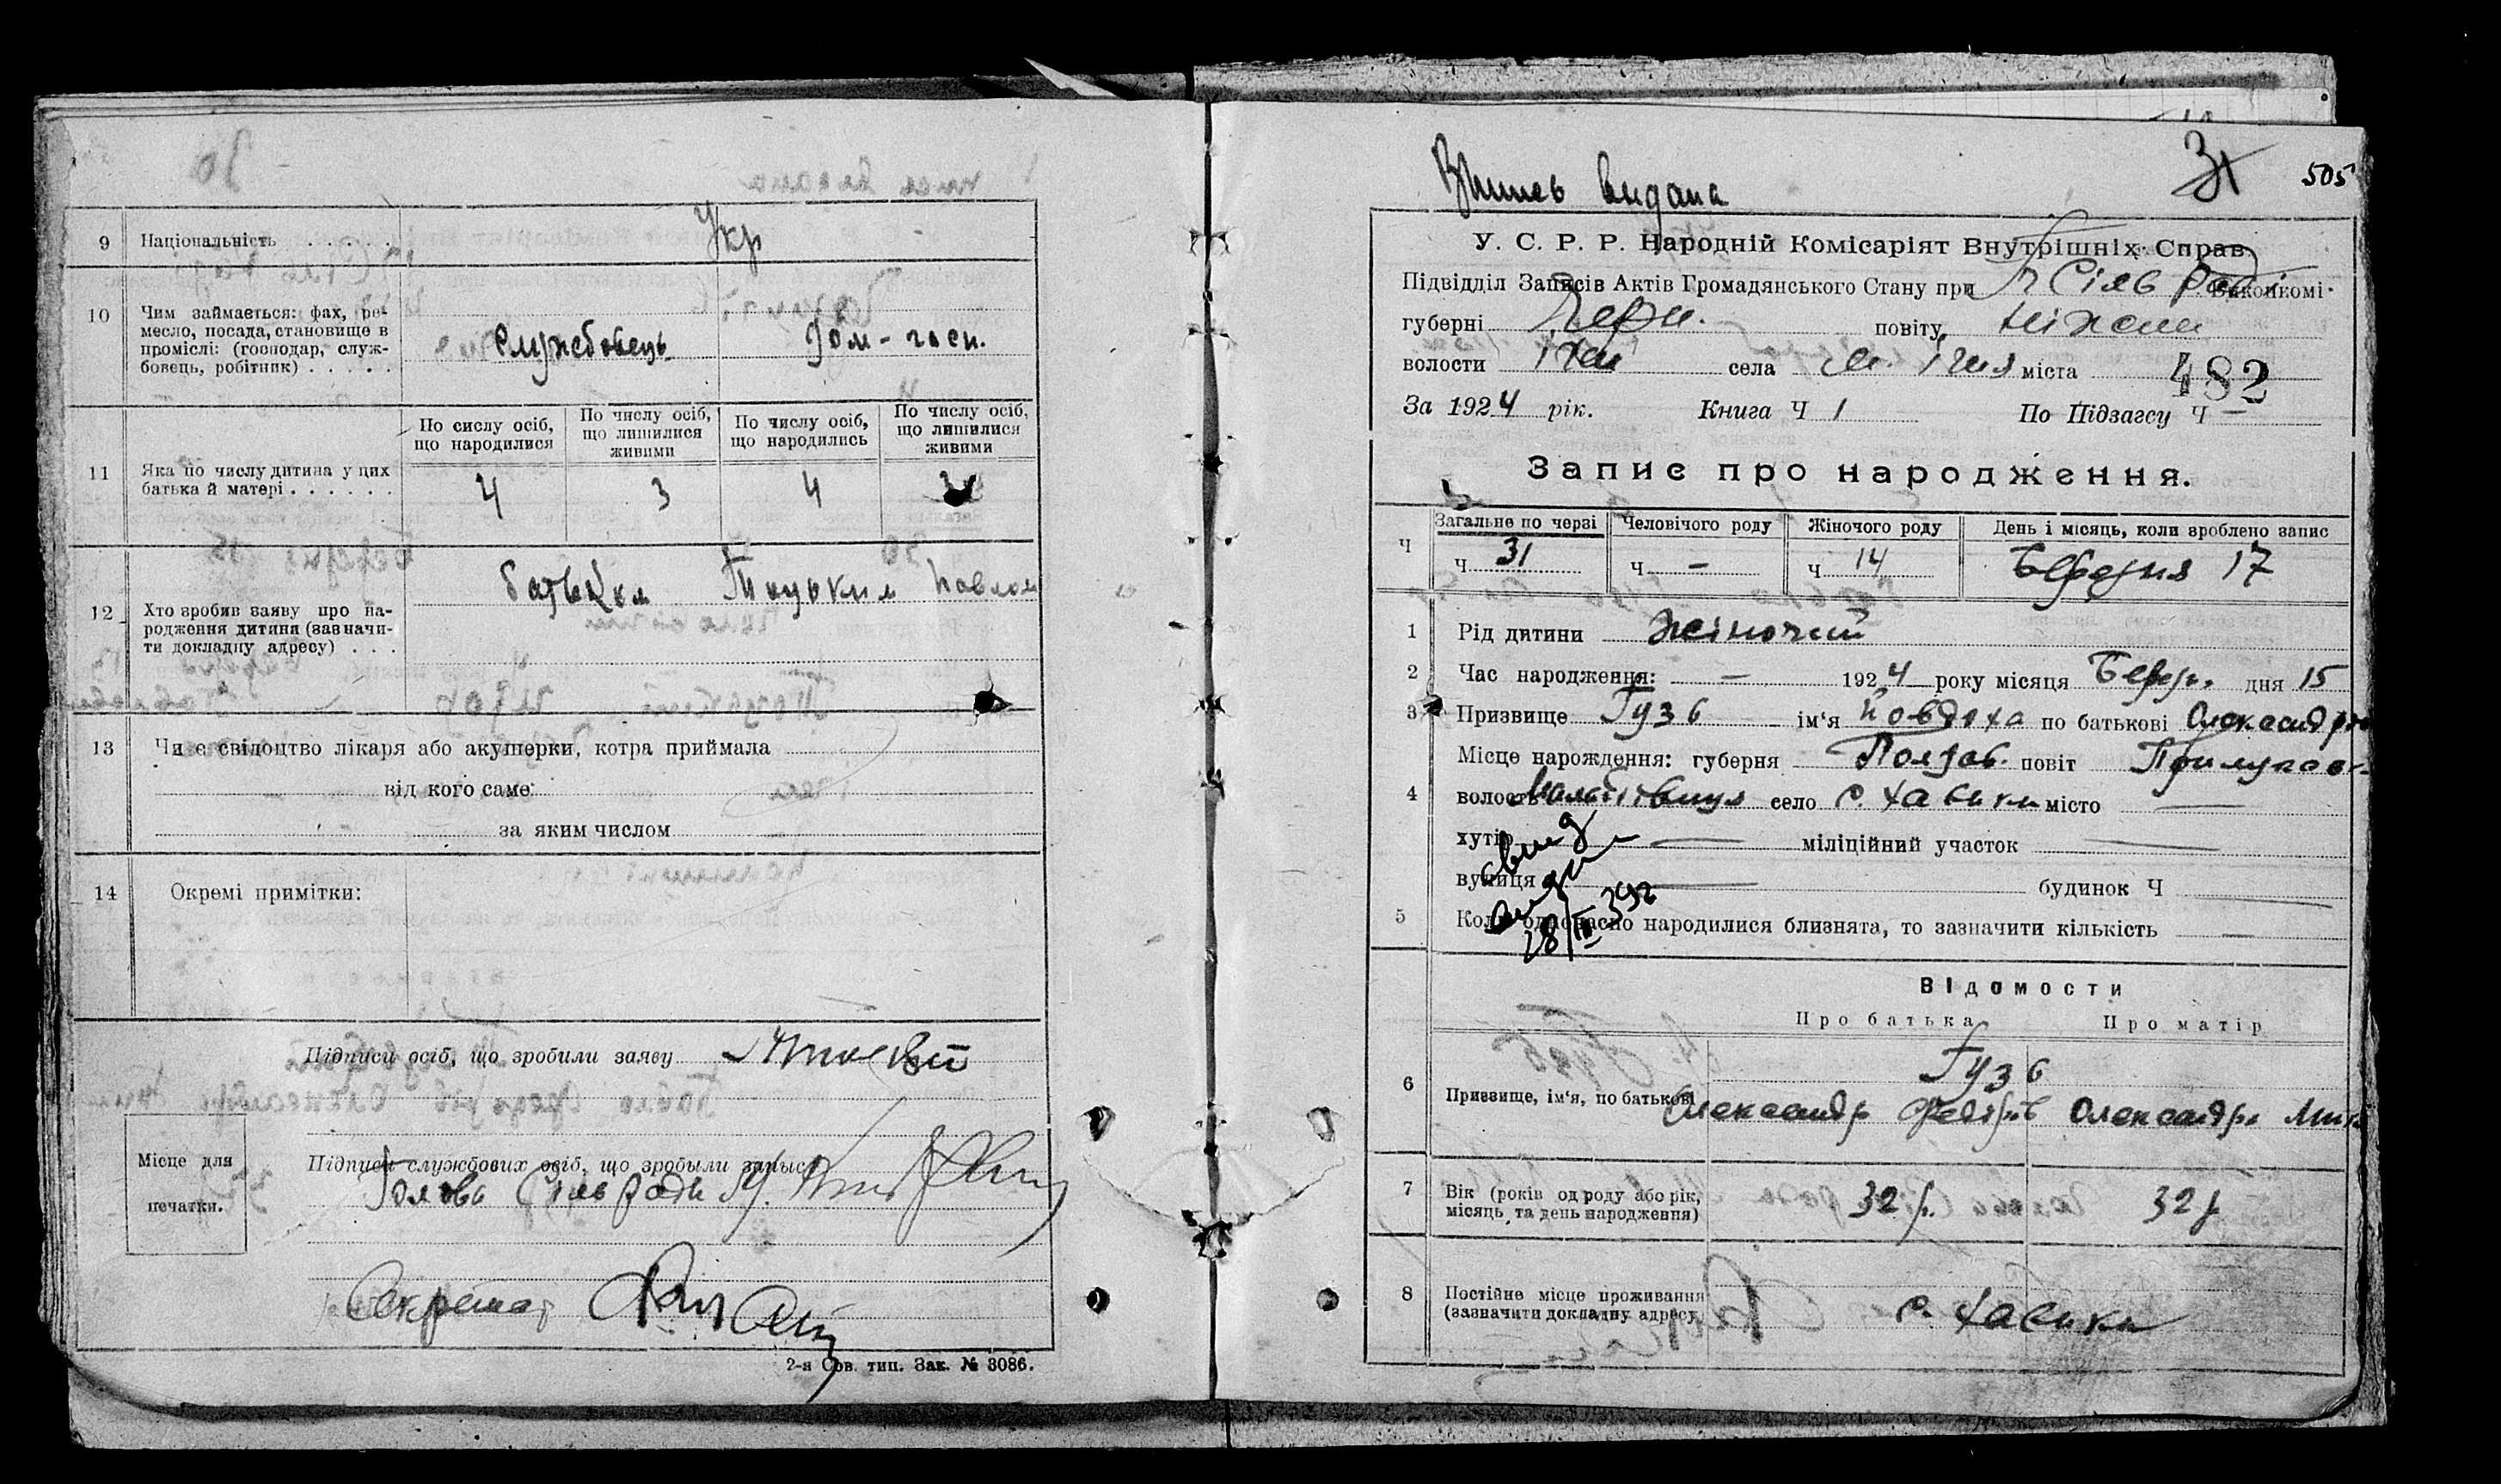 9 Національність . . . . . . Укр
10 Чим займається: фах, ре-
месло, посада, становище в
проміслі: (господар, служ-
бовець, робітник) . . . . .
Службовець Дом-госп.
11 Яка по числу дитина у цих
батька й матері . . . . . .
По сислу осіб, що народилися
По числу осіб, що лишилися живими
По числу осіб, що народились
По числу осіб, що лишилися живими
4 3 4 3
12 Хто зробив заяву про на-
родження дитини (зазначи-
ти докладну адресу) . . .
батьком Павлом
13 Чи є свідоцтво лікаря або акушерки, котра приймала
від кого саме:
за яким числом
14 Окремі примітки:
Підписи осіб, що зробили заяву
Місце для
печатки.
Підписи службових осіб, що зробыли запыс:
Голова Сільради
Секретар
2-я Сов. тип. Зак. № 3086.
Випись видана
31 505
У. С. Р. Р. Народній Комісаріят Внутрішніх Справ.
Підвідділ Записів Актів Громадянського Стану при Сільрад Виконкомі.
губерні Черн. повіту Ніжен
волости Ічен села м. Ічня міста
482
За 1924 рік. Книга Ч 1 По Підзагсу Ч —
Запис про народження.
Ч
Загальне по черзі Человічого роду Жіночого роду День і місяць, коли зроблено запис
Ч 31 Ч — Ч 14 Березня 17
1 Рід дитини жіночий
2 Час народження: — 1924 року місяця Берез. дня 15
3 Призвище Гузь ім‘я Повдоха по батькові Олександров
Місце народження: губерня Полтав. повіт Прилуцьк.
4 волость село с. Хаєнки місто —
хутір — міліційний участок —
вулиця — будинок Ч —
свид
видан
28/III 392
5 Коли одночасно народилися близнята, то зазначити кількість —
Відомости
Про батька Про матір
6 Призвище, ім‘я, по батькові
Гузь
Олександр Федорів Олександра Мик
7 Вік (років од роду або рік,
місяць та день народження)
32 р. 32 р
8 Постійне місце проживання
(зазначити докладну адресу
с. Хаєнки